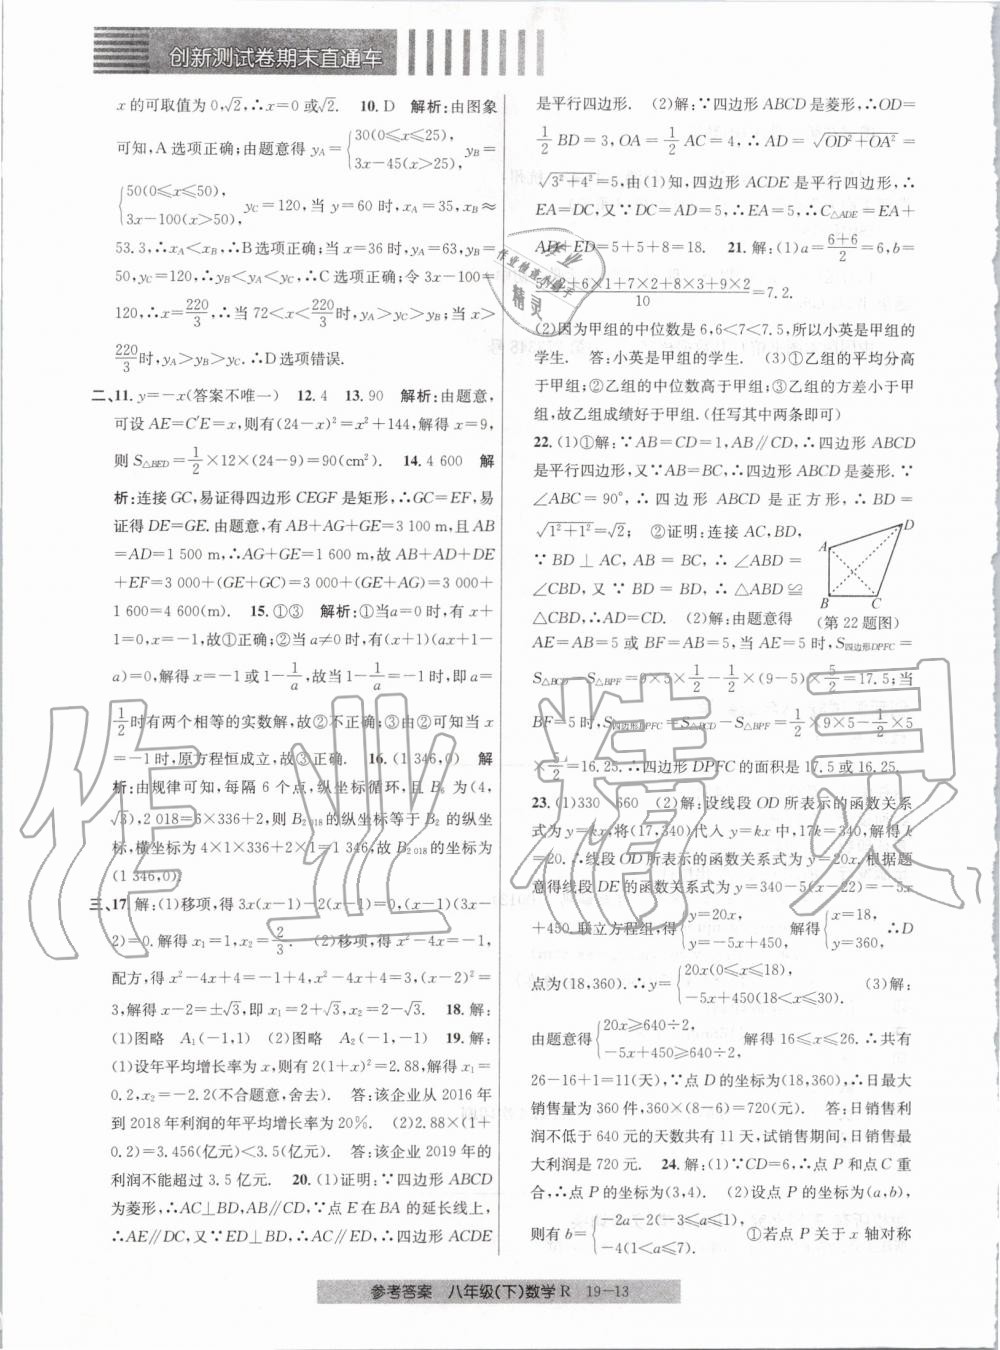 创新测试卷期末直通车
x的可取值为0,√2,∴x=0或√2.  10. D  解析:由图象
可知,A选项正确;由题意得 y_A={30(0≤x≤25), 3x-45(x>25), y_B=
{50(0≤x≤50), 3x-100(x>50), y_C=120,当y=60时,x_A=35,x_B≈
53.3,∴x_A<x_B,∴B选项正确;当x=36时,y_A=63,y_B=
50,y_C=120,∴y_B<y_A<y_C,∴C选项正确;令3x-100=
120,∴x=220/3,∴当72<x<220/3时,y_A>y_C>y_B;当x>
220/3时,y_A>y_B>y_C.∴D选项错误.
二、11. y=-x(答案不唯一)  12. 4  13. 90  解析:由题意,
可设AE=C′E=x,则有(24-x)²=x²+144,解得x=9,
则S△BED=1/2×12×(24-9)=90(cm²).  14. 4 600  解
析:连接GC,易证得四边形CEGF是矩形,∴GC=EF,易
证得DE=GE.由题意,有AB+AG+GE=3 100 m,且AB
=AD=1 500 m,∴AG+GE=1 600 m,故AB+AD+DE
+EF=3 000+(GE+GC)=3 000+(GE+AG)=3 000+
1 600=4 600(m).  15. ①③  解析:①当a=0时,有x+
1=0,x=-1,故①正确;②当a≠0时,有(x+1)(ax+1-
a)=0,解得x=-1或1-1/a,故当-1=1-1/a,解得a=
1/2时有两个相等的实数解,故②不正确;③由②可知当x
=-1时,原方程恒成立,故③正确.  16. (1 346,0)  解
析:由规律可知,每隔6个点,纵坐标循环,且B₆为(4,
√3),2 018=6×336+2,则B₂ ₀₁₈的纵坐标等于B₂的纵坐
标,横坐标为4×1×336+2×1=1 346.故B₂ ₀₁₈的坐标为
(1 346,0).
三、17. 解:(1)移项,得3x(x-1)-2(x-1)=0,(x-1)(3x-
2)=0.解得x₁=1,x₂=2/3.  (2)移项,得x²-4x=-1,
配方,得x²-4x+4=-1+4,x²-4x+4=3,(x-2)²=
3,解得x-2=±√3,即x₁=2+√3,x₂=2-√3.  18. 解:
(1)图略  A₁(-1,1)  (2)图略  A₂(-1,-1)  19. 解:
(1)设年平均增长率为x,则有2(1+x)²=2.88,解得x₁=
0.2,x₂=-2.2(不合题意,舍去).  答:该企业从2016年
到2018年利润的年平均增长率为20%.  (2)2.88×(1+
0.2)=3.456(亿元)<3.5(亿元).  答:该企业2019年的
利润不能超过3.5亿元.  20. (1)证明:∵四边形ABCD
为菱形,∴AC⊥BD,AB∥CD,∵点E在BA的延长线上,
∴AE∥DC,又∵ED⊥BD,∴AC∥ED,∴四边形ACDE
是平行四边形.  (2)解:∵四边形ABCD是菱形,∴OD=
1/2 BD=3,OA=1/2 AC=4,∴AD=√(OD²+OA²)=
√(3²+4²)=5,由(1)知,四边形ACDE是平行四边形,∴
EA=DC,又∵DC=AD=5,∴EA=5,∴C△ADE=EA+
AD+ED=5+5+8=18.  21. 解:(1)a=(6+6)/2=6,b=
(5×2+6×1+7×2+8×3+9×2)/10=7.2.
(2)因为甲组的中位数是6,6<7<7.5,所以小英是甲组的
学生.  答:小英是甲组的学生.  (3)①乙组的平均分高
于甲组;②乙组的中位数高于甲组;③乙组的方差小于甲
组,故乙组成绩好于甲组.(任写其中两条即可)
22. (1)①解:∵AB=CD=1,AB∥CD,∴四边形ABCD
是平行四边形,又∵AB=BC,∴四边形ABCD是菱形.∵
∠ABC=90°,∴四边形ABCD是正方形,∴BD=
√(1²+1²)=√2;  ②证明:连接AC,BD,
∵BD⊥AC,AB=BC,∴∠ABD=
∠CBD,又∵BD=BD,∴△ABD≌
△CBD,∴AD=CD.  (2)解:由题意得
A
D
B
C
(第22题图)
AE=AB=5或BF=AB=5,当AE=5时,S四边形DPFC=
S△BCD-S△BPF=9×5×1/2-1/2×(9-5)×5/2=17.5;当
BF=5时,S四边形DPFC=S△BCD-S△BPF=1/2×9×5-1/2×5
×5/2=16.25.∴四边形DPFC的面积是17.5或16.25.
23. (1)330  660  (2)解:设线段OD所表示的函数关系
式为y=kx,将(17,340)代入y=kx中,17k=340,解得k
=20.∴线段OD所表示的函数关系式为y=20x.根据题
意得线段DE的函数关系式为y=340-5(x-22)=-5x
+450.联立方程组,得{y=20x, y=-5x+450, 解得{x=18, y=360, ∴D
点为(18,360).∴y={20x(0≤x≤18), -5x+450(18<x≤30).  (3)解:
由题意得{20x≥640÷2, -5x+450≥640÷2, 解得16≤x≤26.∴共有
26-16+1=11(天),∵点D的坐标为(18,360),∴日最大
销售量为360件,360×(8-6)=720(元).  答:日销售利
润不低于640元的天数共有11天,试销售期间,日销售最
大利润是720元.  24. 解:(1)∵CD=6,∴点P和点C重
合,∴点P的坐标为(3,4).  (2)设点P的坐标为(a,b),
则有b={-2a-2(-3≤a≤1), -4(1<a≤7).  ①若点P关于x轴对称
参考答案  八年级(下)数学R  19-13
作业精灵